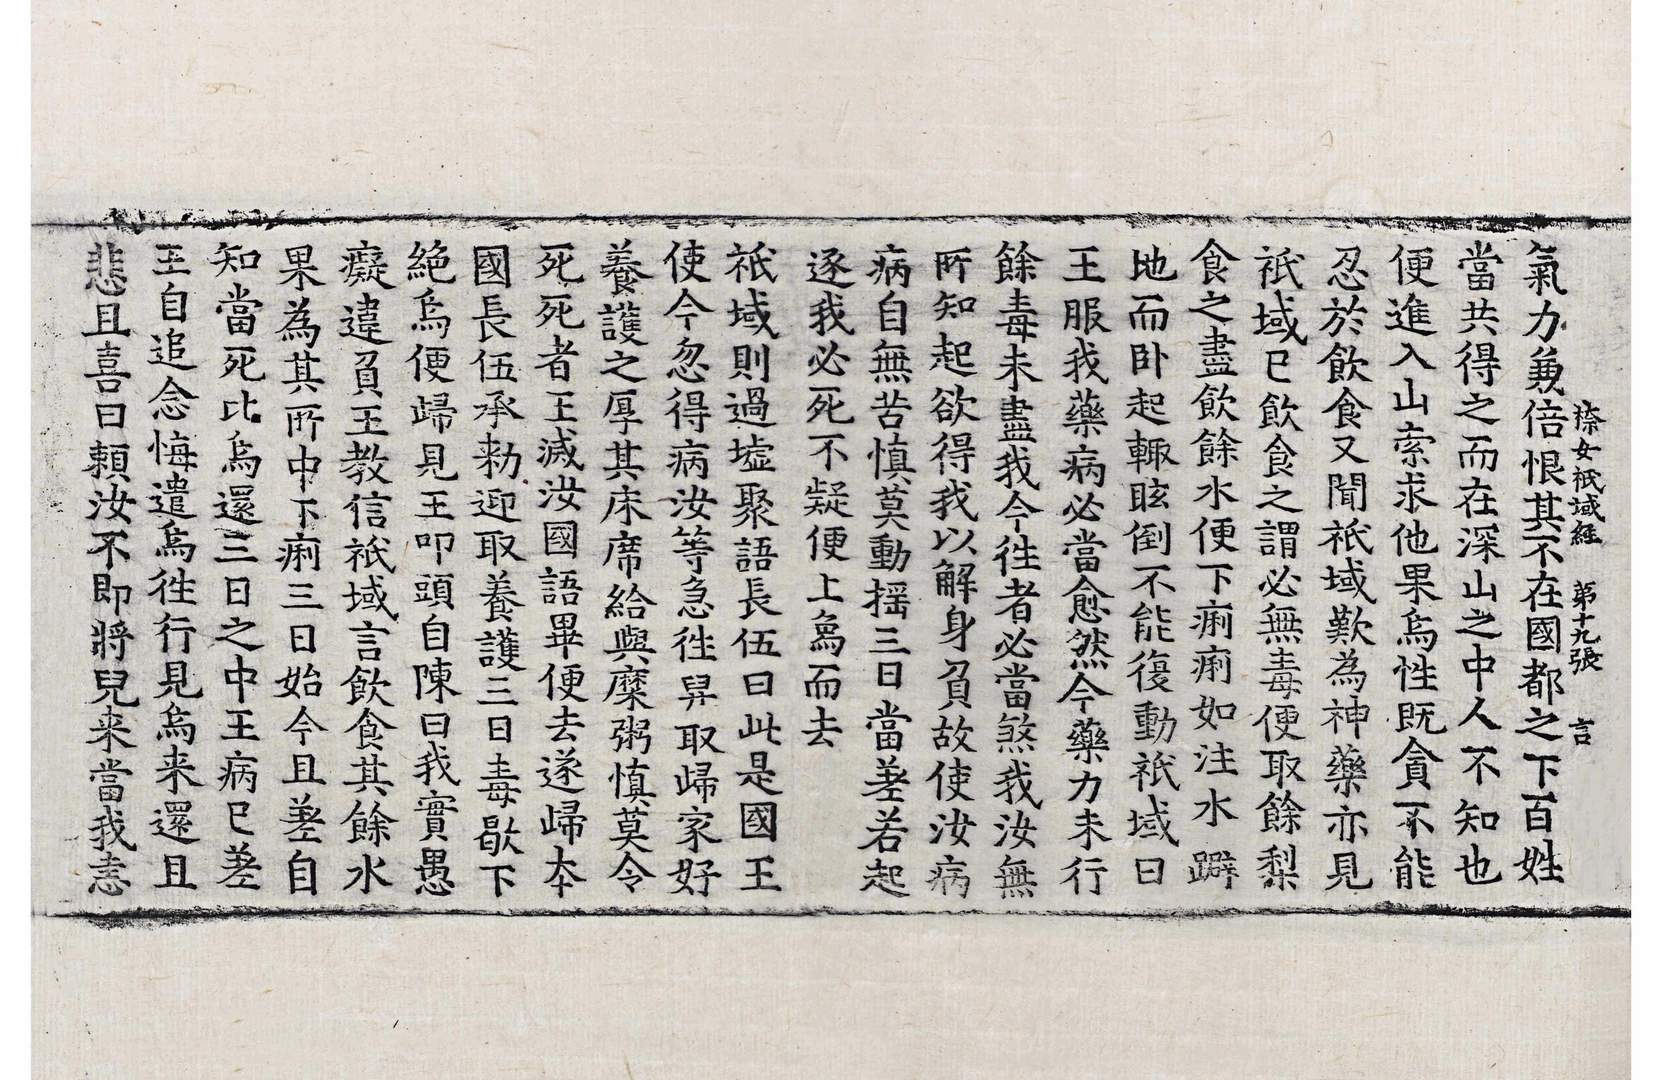 㮈女祇域經　第十九張　言
氣力兼倍恨其不在國都之下百姓
當共得之而在深山之中人不知也
便進入山索求他果烏性既貪不能
忍於飲食又聞祇域歎為神藥亦見
祇域已飲食之謂必無毒便取餘梨
食之盡飲餘水便下痢痢如注水躃
地而卧起輙眩倒不能復動祇域曰
王服我藥病必當愈然今藥力未行
餘毒未盡我今徃者必當煞我汝無
所知起欲得我以解身負故使汝病
病自無苦慎莫動揺三日當差若起
逐我必死不疑便上為而去
祇域則過墟聚語長伍曰此是國王
使今忽得病汝等急徃舁取歸家好
養護之厚其床席給與糜粥慎莫令
死死者王滅汝國語畢便去遂歸本
國長伍承勑迎取養護三日毒歇下
絕烏便歸見王叩頭自陳曰我實愚
癡違負王教信祇域言飲食其餘水
果為其所中下痢三日始今且差自
知當死比烏還三日之中王病已差
王自追念悔遣烏徃行見烏来還且
悲且喜曰賴汝不即將兒来當我恚